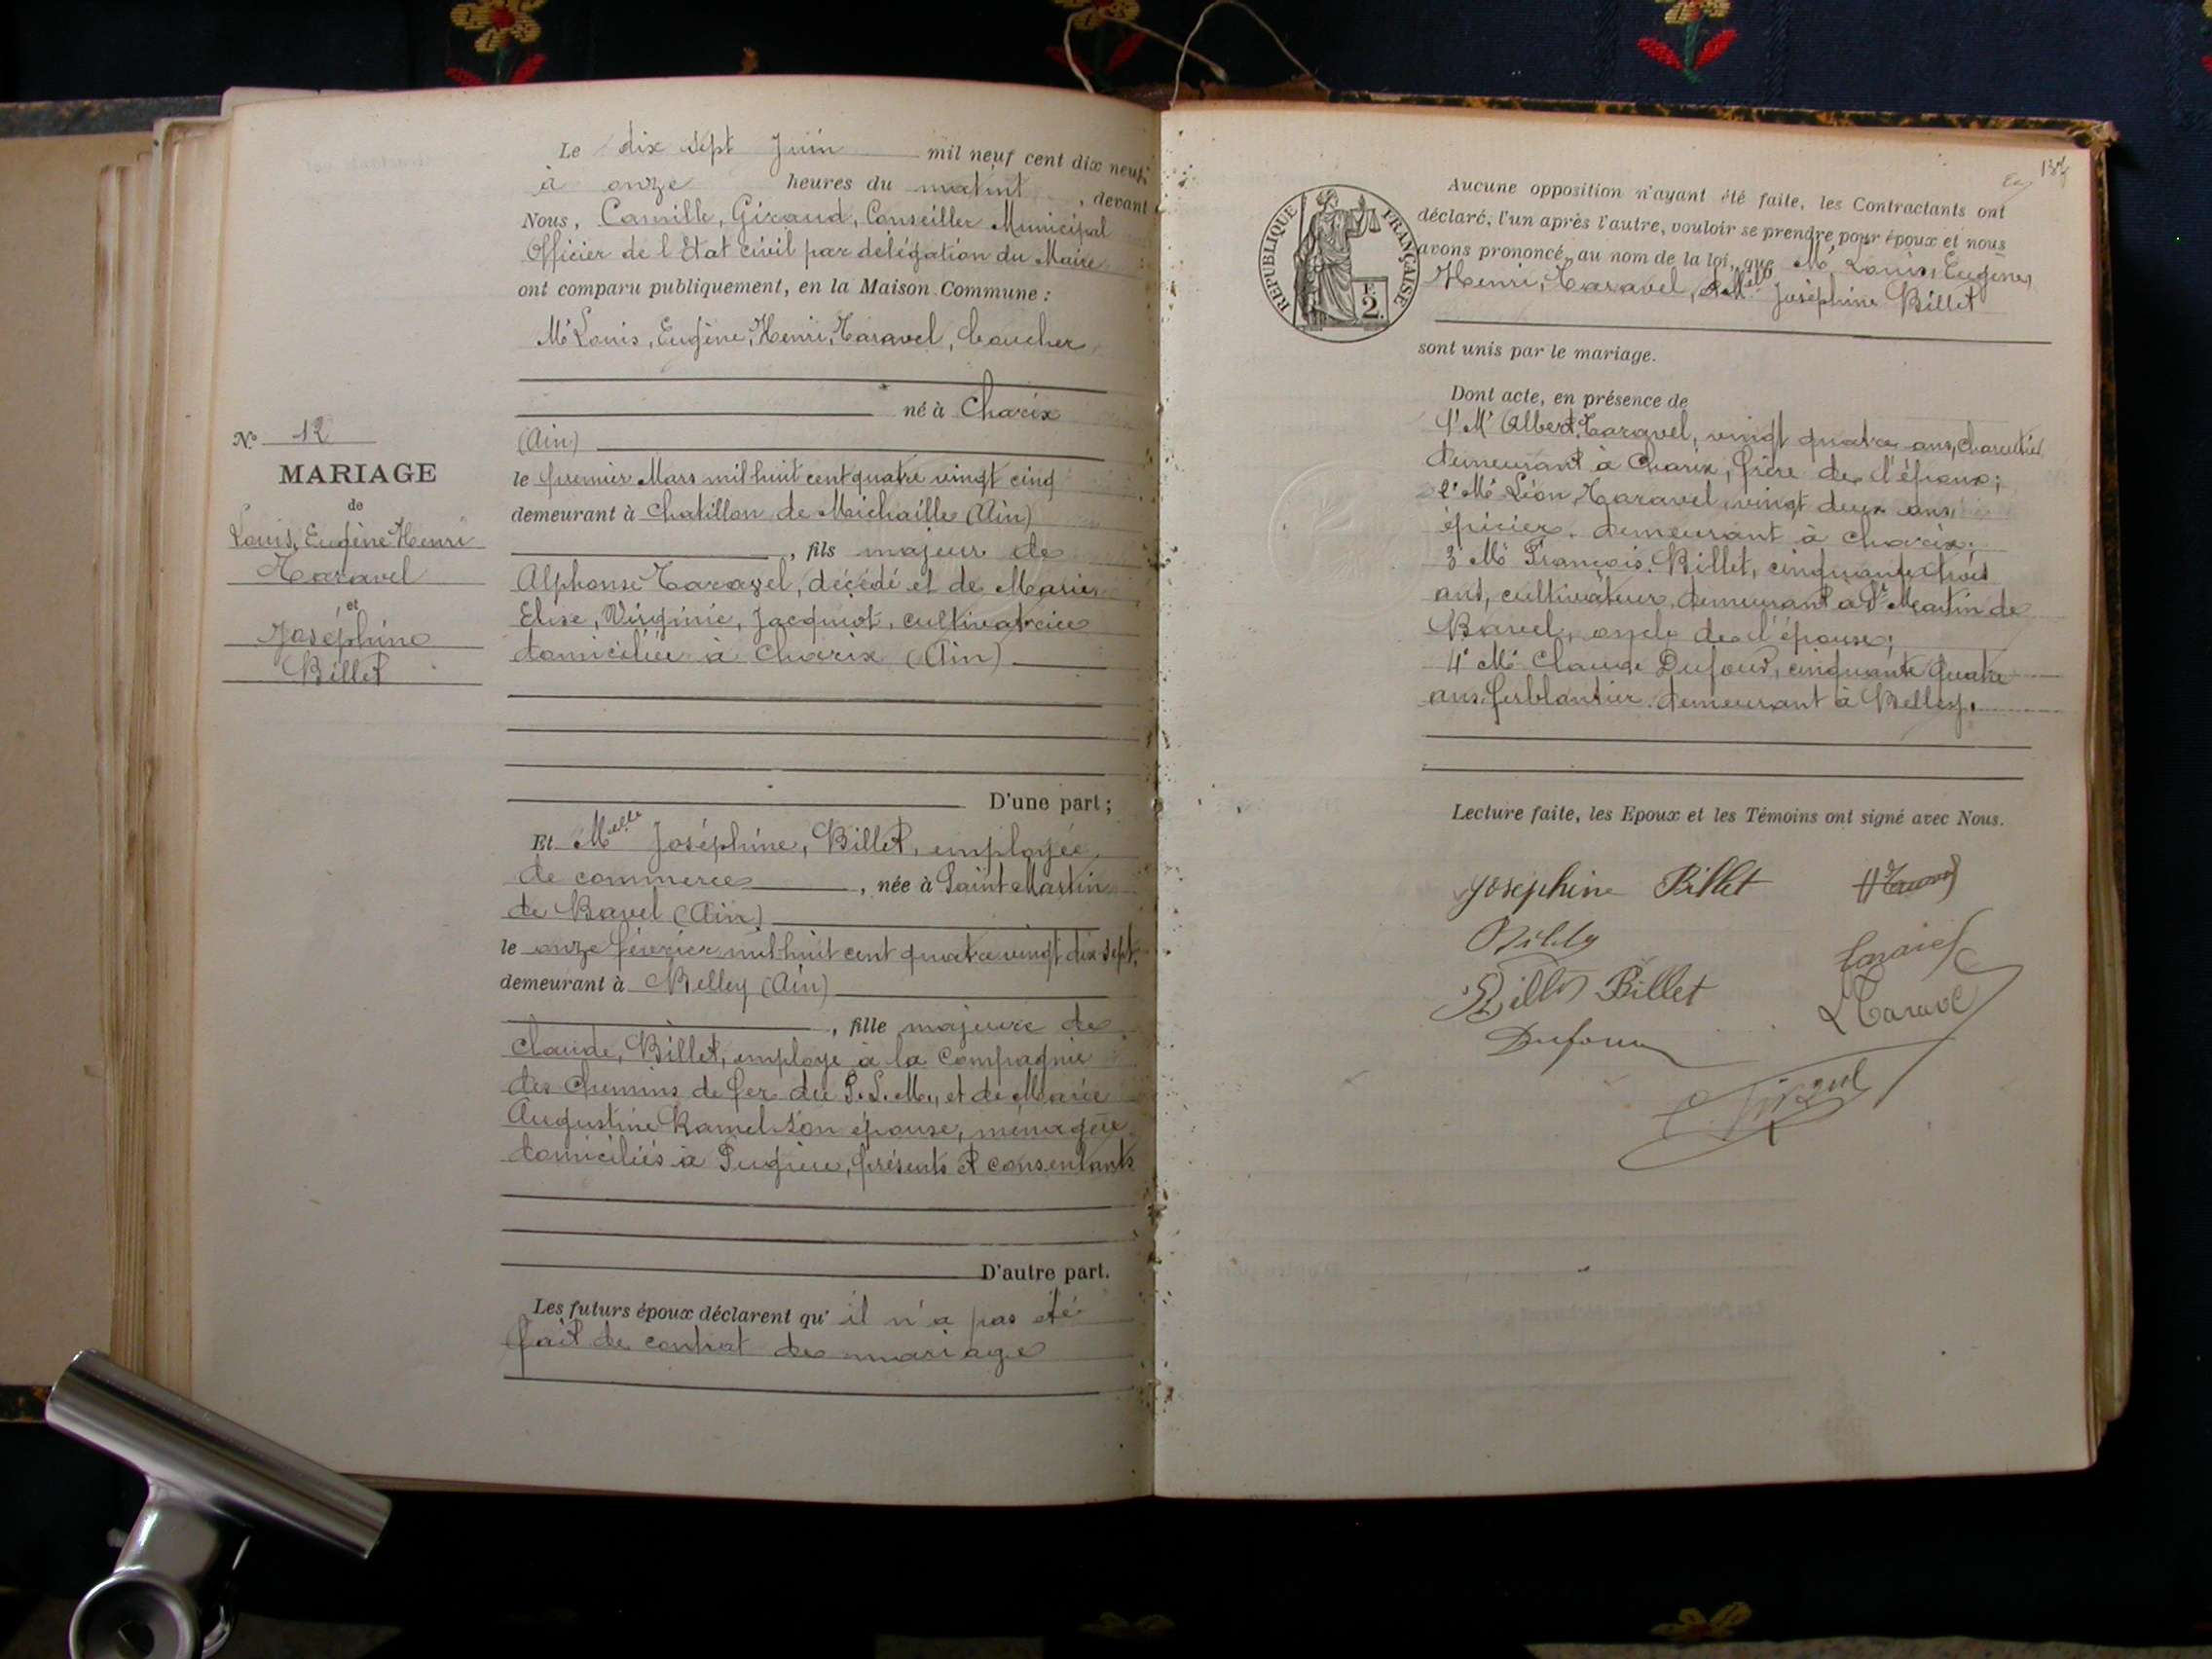 Le dix sept Juin mil neuf cent dix neuf
à onze heures du matin , devant
Nous, Camille, Giraud, Conseiller Municipal
Officier de l'Etat civil par délégation du Maire
ont comparu publiquement, en la Maison Commune :
Mr Louis, Eugène, Henri, Taravel, boucher
né à Charix
(Ain)
le premier Mars mil huit cent quatre vingt cinq
demeurant à Chatillon de Michaille (Ain)
, fils majeur de
Alphonse Taravel, décédé et de Marie
Elise, Virginie, Jacquiot, cultivatrice
domiciliée à Charix (Ain)
D'une part ;
No 12
MARIAGE
de
Louis, Eugène Henri
Taravel
et
Joséphine
Billet
Et Melle Joséphine, Billet, employée
de commerce , née à Saint Martin
de Bavel (Ain)
le onze février mil huit cent quatre vingt dix sept,
demeurant à Belley (Ain)
, fille majeure de
Claude, Billet, employé à la Compagnie
des Chemins de fer du P.L.M., et de Marie
Augustine Ramel son épouse, ménagère
domiciliés à Pugieu, présents et consentants
D'autre part.
Les futurs époux déclarent qu' il n'a pas été
fait de contrat de mariage
REPUBLIQUE FRANÇAISE
F.
2.
Aucune opposition n'ayant été faite, les Contractants ont
déclaré, l'un après l'autre, vouloir se prendre pour époux et nous
avons prononcé, au nom de la loi, que Mr Louis Eugène,
Henri, Taravel, et Melle Joséphine Billet
sont unis par le mariage.
Dont acte, en présence de
1° Mr Albert, Taravel, vingt quatre ans, charcutier
demeurant à Charix, frère de l'époux ;
2° Mr Léon, Taravel, vingt deux ans,
épicier, demeurant à Charix.
3° Mr François, Billet, cinquante trois
ans, cultivateur, demeurant à St Martin de
Bavel, oncle de l'épouse ;
4° Mr Claude Dufour, cinquante quatre
ans, ferblantier demeurant à Belley.
Lecture faite, les Epoux et les Témoins ont signé avec Nous.
Joséphine Billet
Billet
Taravel
Dufour
C. Giraud